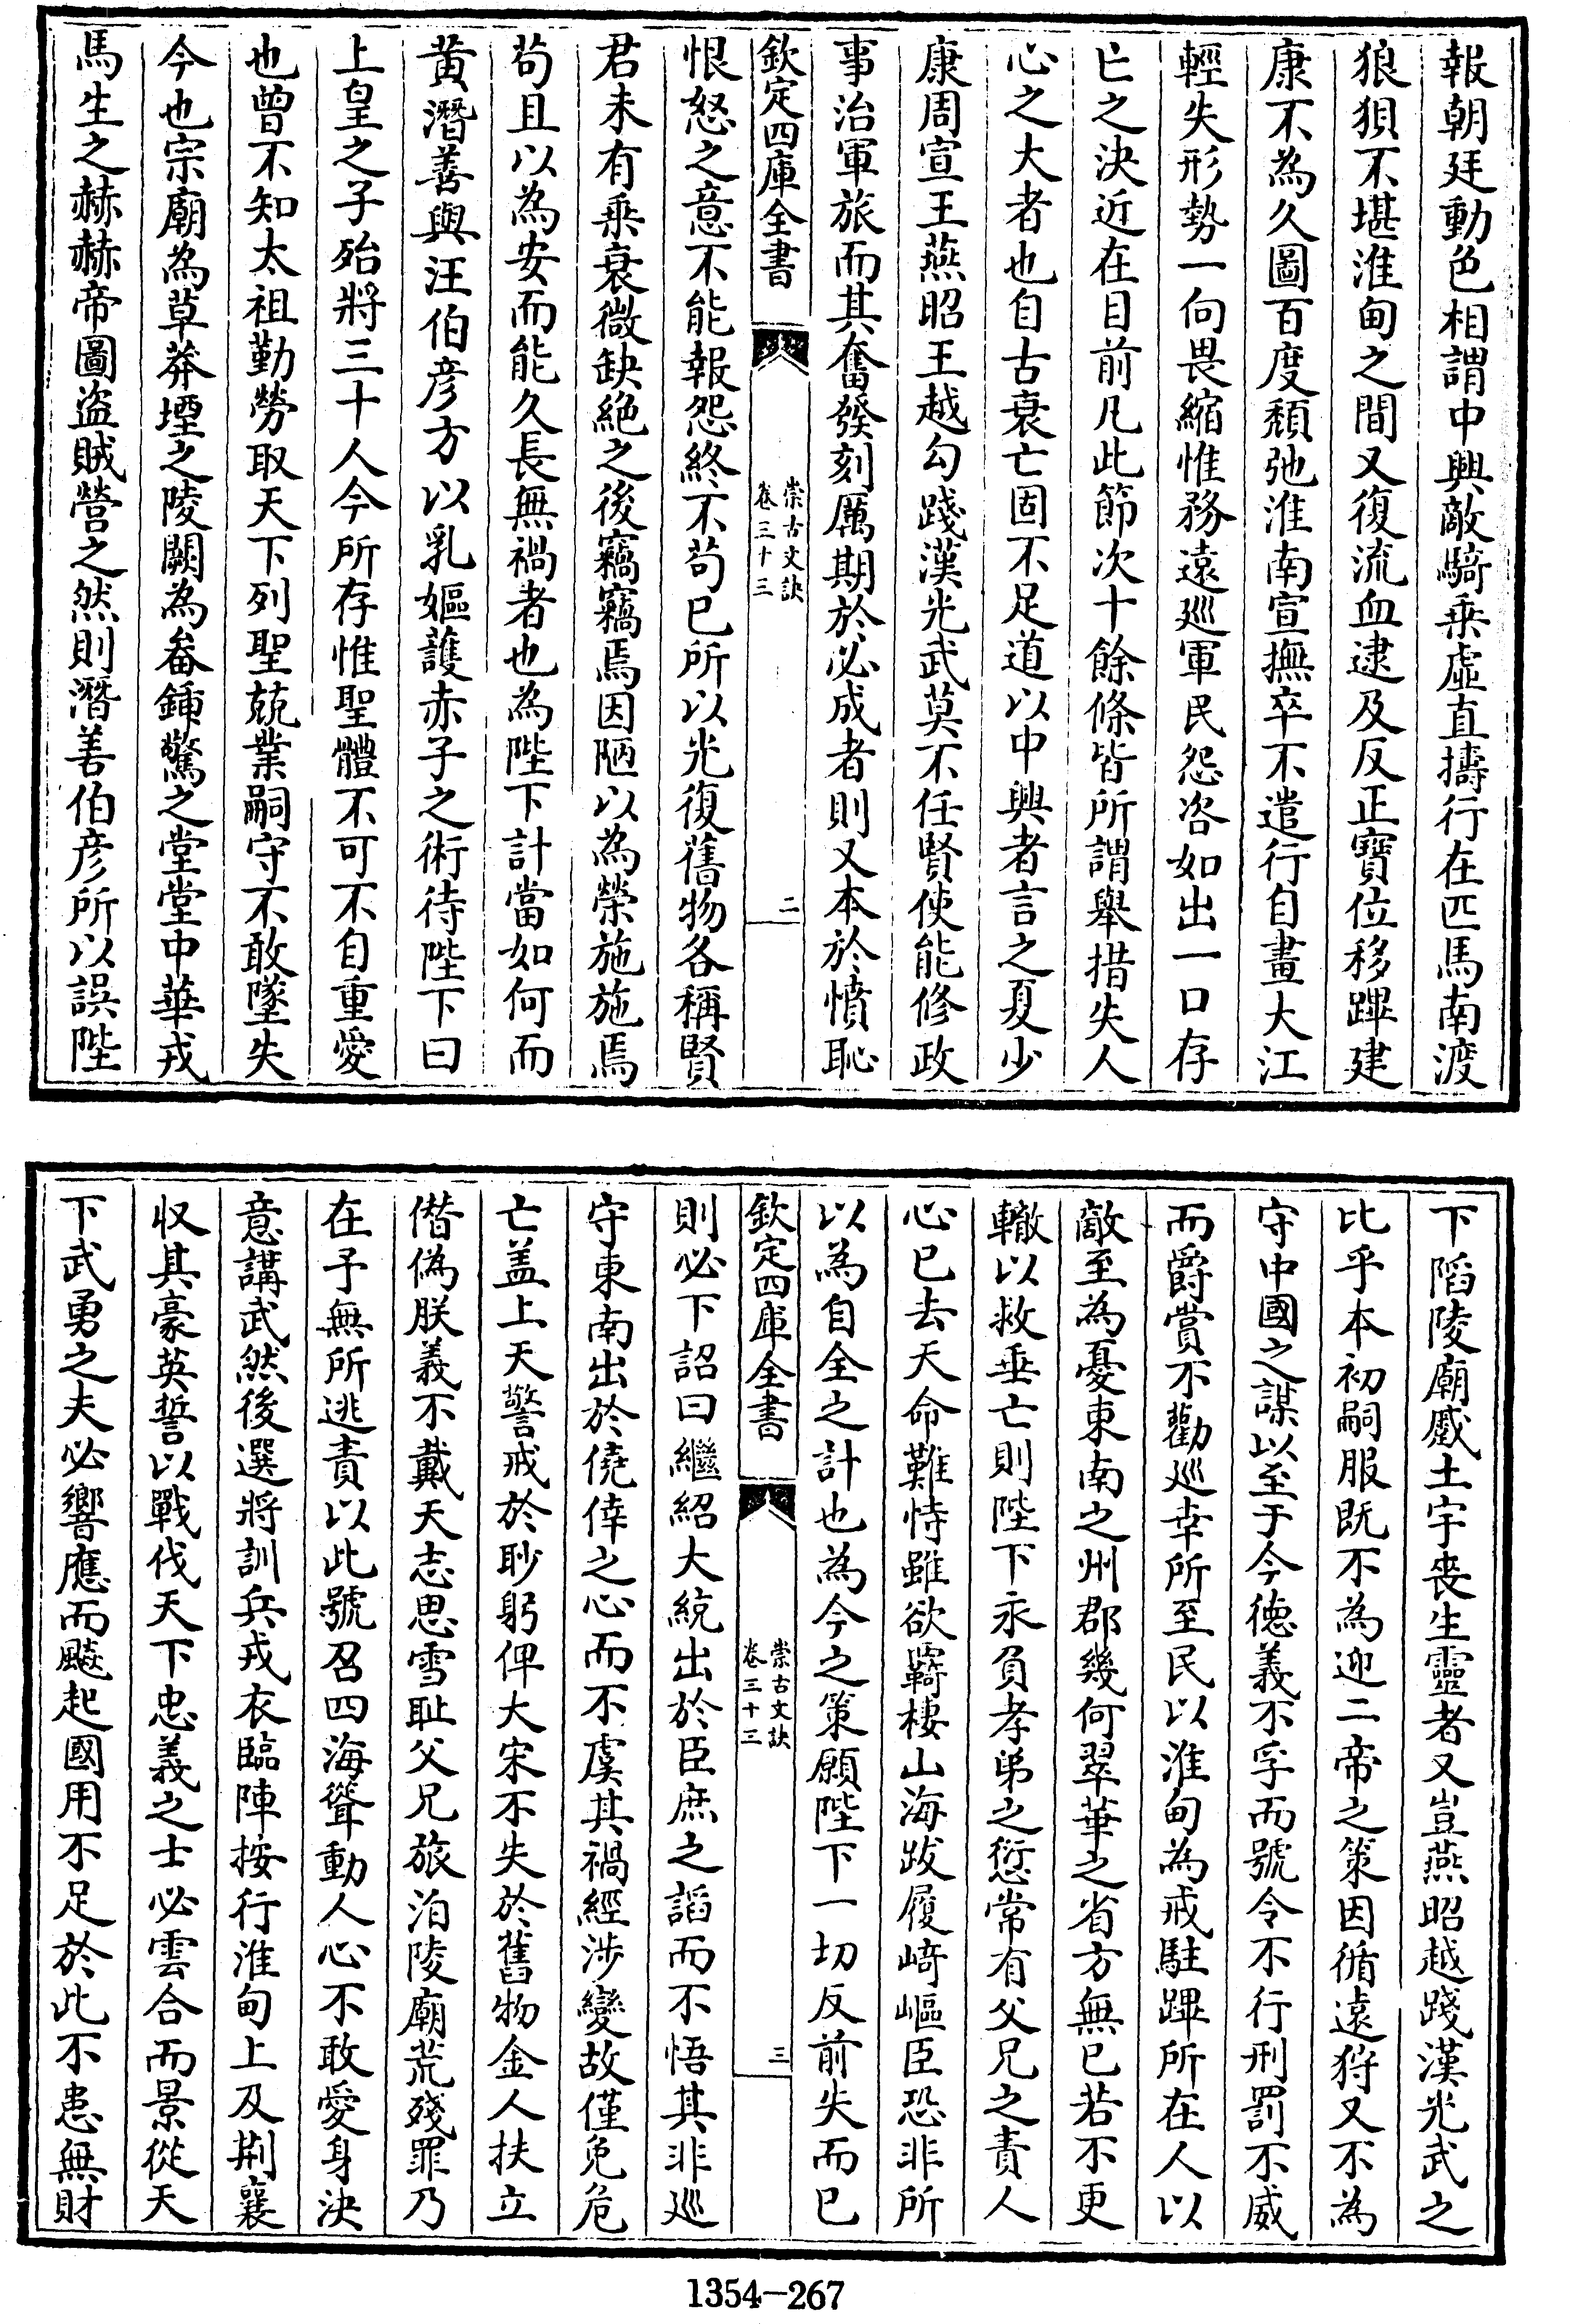 報朝廷動色相謂中興敵騎乘虛直擣行在匹馬南渡
狼狽不堪淮甸之間又復流血逮及反正寶位移蹕建
康不為久圖百度頽弛淮南宣撫卒不遣行自畫大江
輕失形勢一向畏縮惟務遠廵軍民怨咨如出一口存
亡之決近在目前凡此節次十餘條皆所謂舉措失人
心之大者也自古衰亡固不足道以中興者言之夏少
康周宣王燕昭王越勾踐漢光武莫不任賢使能修政
事治軍旅而其奮發刻厲期於必成者則又本於憤恥
欽定四庫全書
崇古文訣
卷三十三
二
恨怒之意不能報怨終不苟已所以光復舊物各稱賢
君未有乗衰微缺絶之後竊竊焉因陋以為榮施施焉
苟且以為安而能久長無禍者也為陛下計當如何而
黄潛善與汪伯彦方以乳嫗䕶赤子之術待陛下曰
上皇之子殆將三十人今所存惟聖體不可不自重愛
也曾不知太祖勤勞取天下列聖兢業嗣守不敢墜失
今也宗廟為草莽堙之陵闕為畚鍤驚之堂堂中華戎
馬生之赫赫帝圖盗賊營之然則潛善伯彦所以誤陛
下䧟陵廟蹙土宇喪生靈者又豈燕昭越踐漢光武之
比乎本初嗣服既不為迎二帝之策因循遠狩又不為
守中國之謀以至于今徳義不孚而號令不行刑罰不威
而爵賞不勸廵幸所至民以淮甸為戒駐蹕所在人以
敵至為憂東南之州郡幾何翠華之省方無已若不更
轍以救垂亡則陛下永負孝弟之愆常有父兄之責人
心已去天命難恃雖欲覊棲山海跋履崎嶇臣恐非所
以為自全之計也為今之策願陛下一切反前失而已
欽定四庫全書
崇古文訣
卷三十三
三
則必下詔曰繼紹大統出於臣庶之謟而不悟其非廵
守東南出於僥倖之心而不虞其禍經涉變故僅免危
亡盖上天警戒於眇躬俾大宋不失於舊物金人扶立
僣偽朕義不戴天志思雪耻父兄旅泊陵廟荒殘罪乃
在予無所逃責以此號召四海聳動人心不敢愛身決
意講武然後選將訓兵戎衣臨陣按行淮甸上及荆襄
収其豪英誓以戰伐天下忠義之士必雲合而景從天
下武勇之夫必響應而飈起國用不足於此不患無財
1354-267